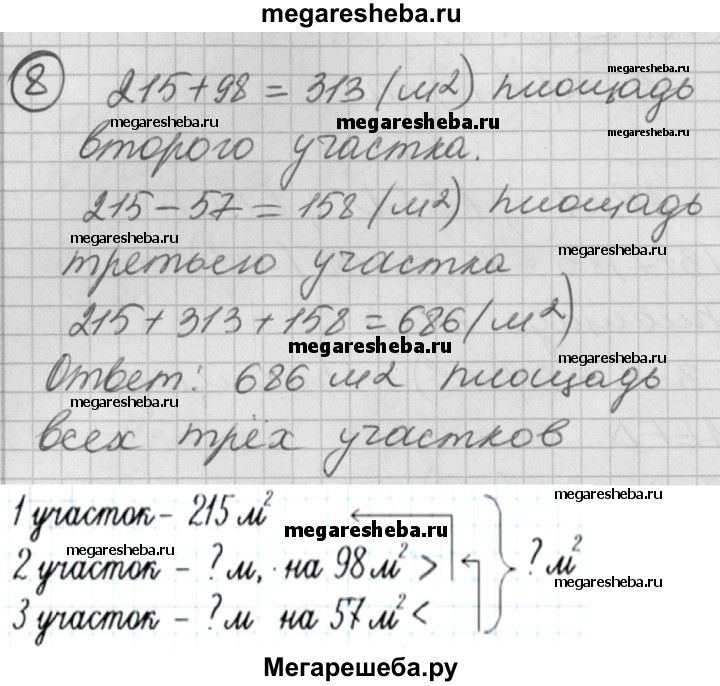 megaresheba.ru
8 215+98=313 (м2) площадь
megaresheba.ru
megaresheba.ru
megaresheba.ru
megaresheba.ru
второго участка.
215-57=158 (м2) площадь
megaresheba.ru
megaresheba.ru
третьего участка
215+313+158=686 (м2)
megaresheba.ru
megaresheba.ru
Ответ: 686 м2 площадь
megaresheba.ru
всех трёх участков
megaresheba.ru
1 участок - 215 м²
megaresheba.ru
megaresheba.ru
2 участок - ? м, на 98 м² > ? м²
megaresheba.ru
3 участок - ? м на 57 м² <
Мегарешеба.ру